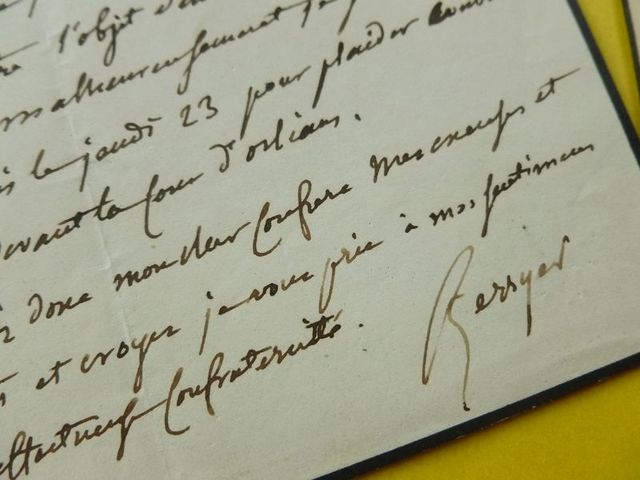 l'objet
malheureusement
le jeudi 23 pour plaider
devant la Cour d'orléans.
donc monsieur Confrere mes excuses et
et croyez je vous prie à mes sentimens
affectueuse Confraternité.
Berryer